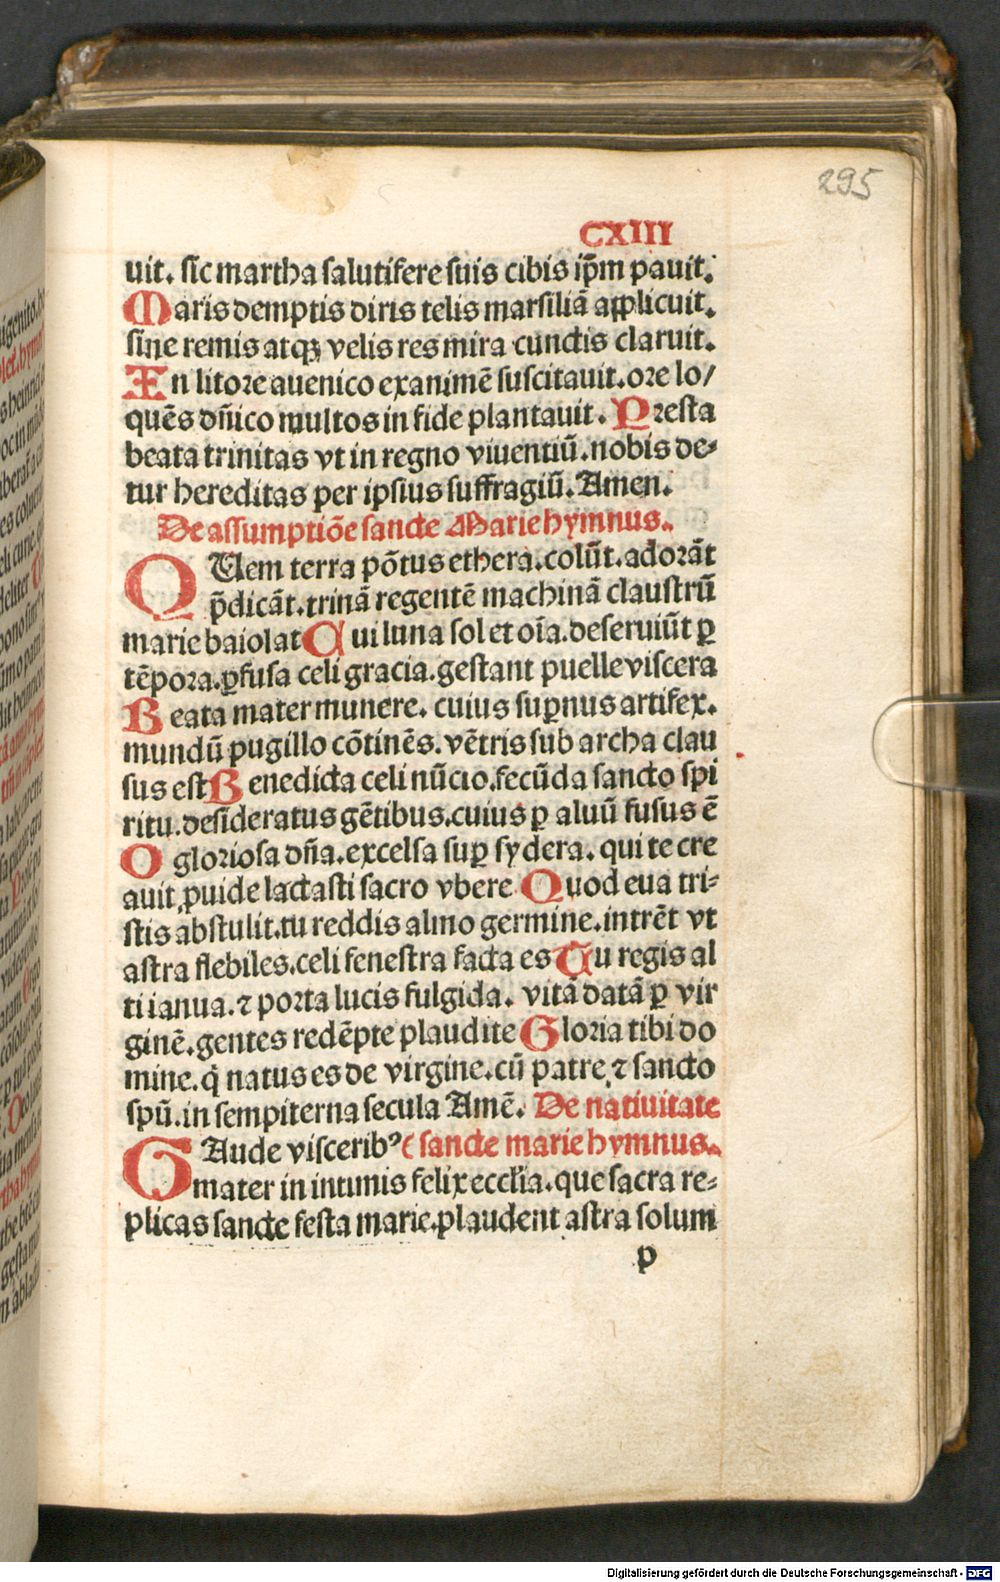 295
CXIII
uit. sic martha salutifere suis cibis ip̄m pauit.
Maris demptis diris telis marsiliā applicuit.
sine remis atqꝫ velis res mira cunctis claruit.
In litore auenico exanimē suscitauit. ore lo/
quēs dn̄ico multos in fide plantauit. Presta
beata trinitas vt in regno viuentiū. nobis de⸗
tur hereditas per ipsius suffragiū. Amen.
De assumptiōe sancte Marie hymnus.
QUem terra pōtus ethera. colūt. adorāt
p̄dicāt. trinā regentē machinā claustrū
marie baiolat Cui luna sol et oīa. deseruiūt ꝑ
tēpora. ꝑfusa celi gracia. gestant puelle viscera
Beata mater munere. cuius suꝑnus artifex.
mundū pugillo cōtinēs. vētris sub archa clau
sus est Benedicta celi nūcio. fecūda sancto spi
ritu. desideratus gētibus. cuius ꝑ aluū fusus ē
O gloriosa dn̄a. excelsa suꝑ sydera. qui te cre
auit ꝓuide lactasti sacro vbere Quod eua tri⸗
stis abstulit. tu reddis almo germine. intrēt vt
astra flebiles. celi fenestra facta es Tu regis al
ti ianua. ⁊ porta lucis fulgida. vitā datā ꝑ vir
ginē. gentes redēpte plaudite Gloria tibi do
mine. q̇ natus es de virgine. cū patre ⁊ sancto
spū. in sempiterna secula Amē. De natiuitate
GAude visceribꝰ ( sancte marie hymnus.
mater in intimis felix eccl̄ia. que sacra re⸗
plicas sancte festa marie. plaudent astra solum
p
Digitalisierung gefördert durch die Deutsche Forschungsgemeinschaft - DFG